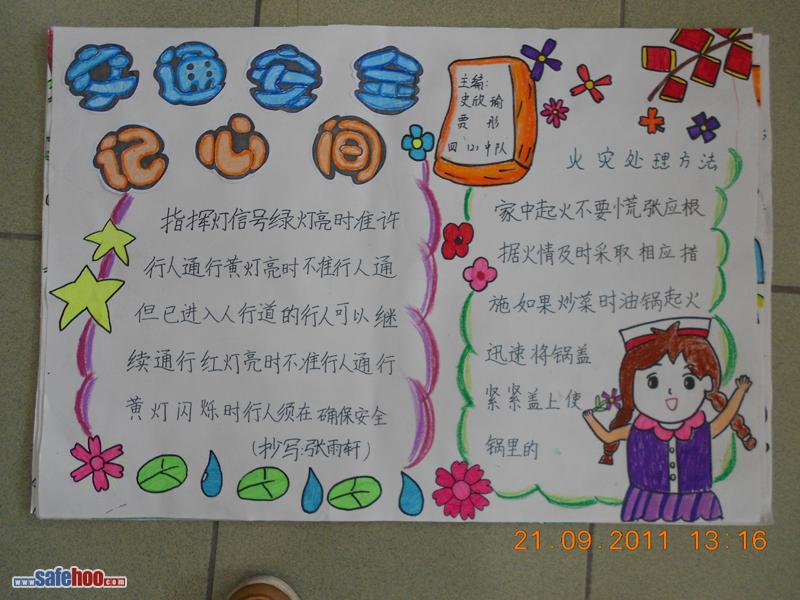 交通安全
记心间
主编:
史欣瑜
贾彤
四(2)中队
指挥灯信号绿灯亮时准许
行人通行黄灯亮时不准行人通
但已进入人行道的行人可以继
续通行红灯亮时不准行人通行
黄灯闪烁时行人须在确保安全
(抄写:张雨轩)
火灾处理方法
家中起火不要慌张应根
据火情及时采取相应措
施如果炒菜时油锅起火
迅速将锅盖
紧紧盖上使
锅里的
21.09.2011 13:16
www.safehoo.com